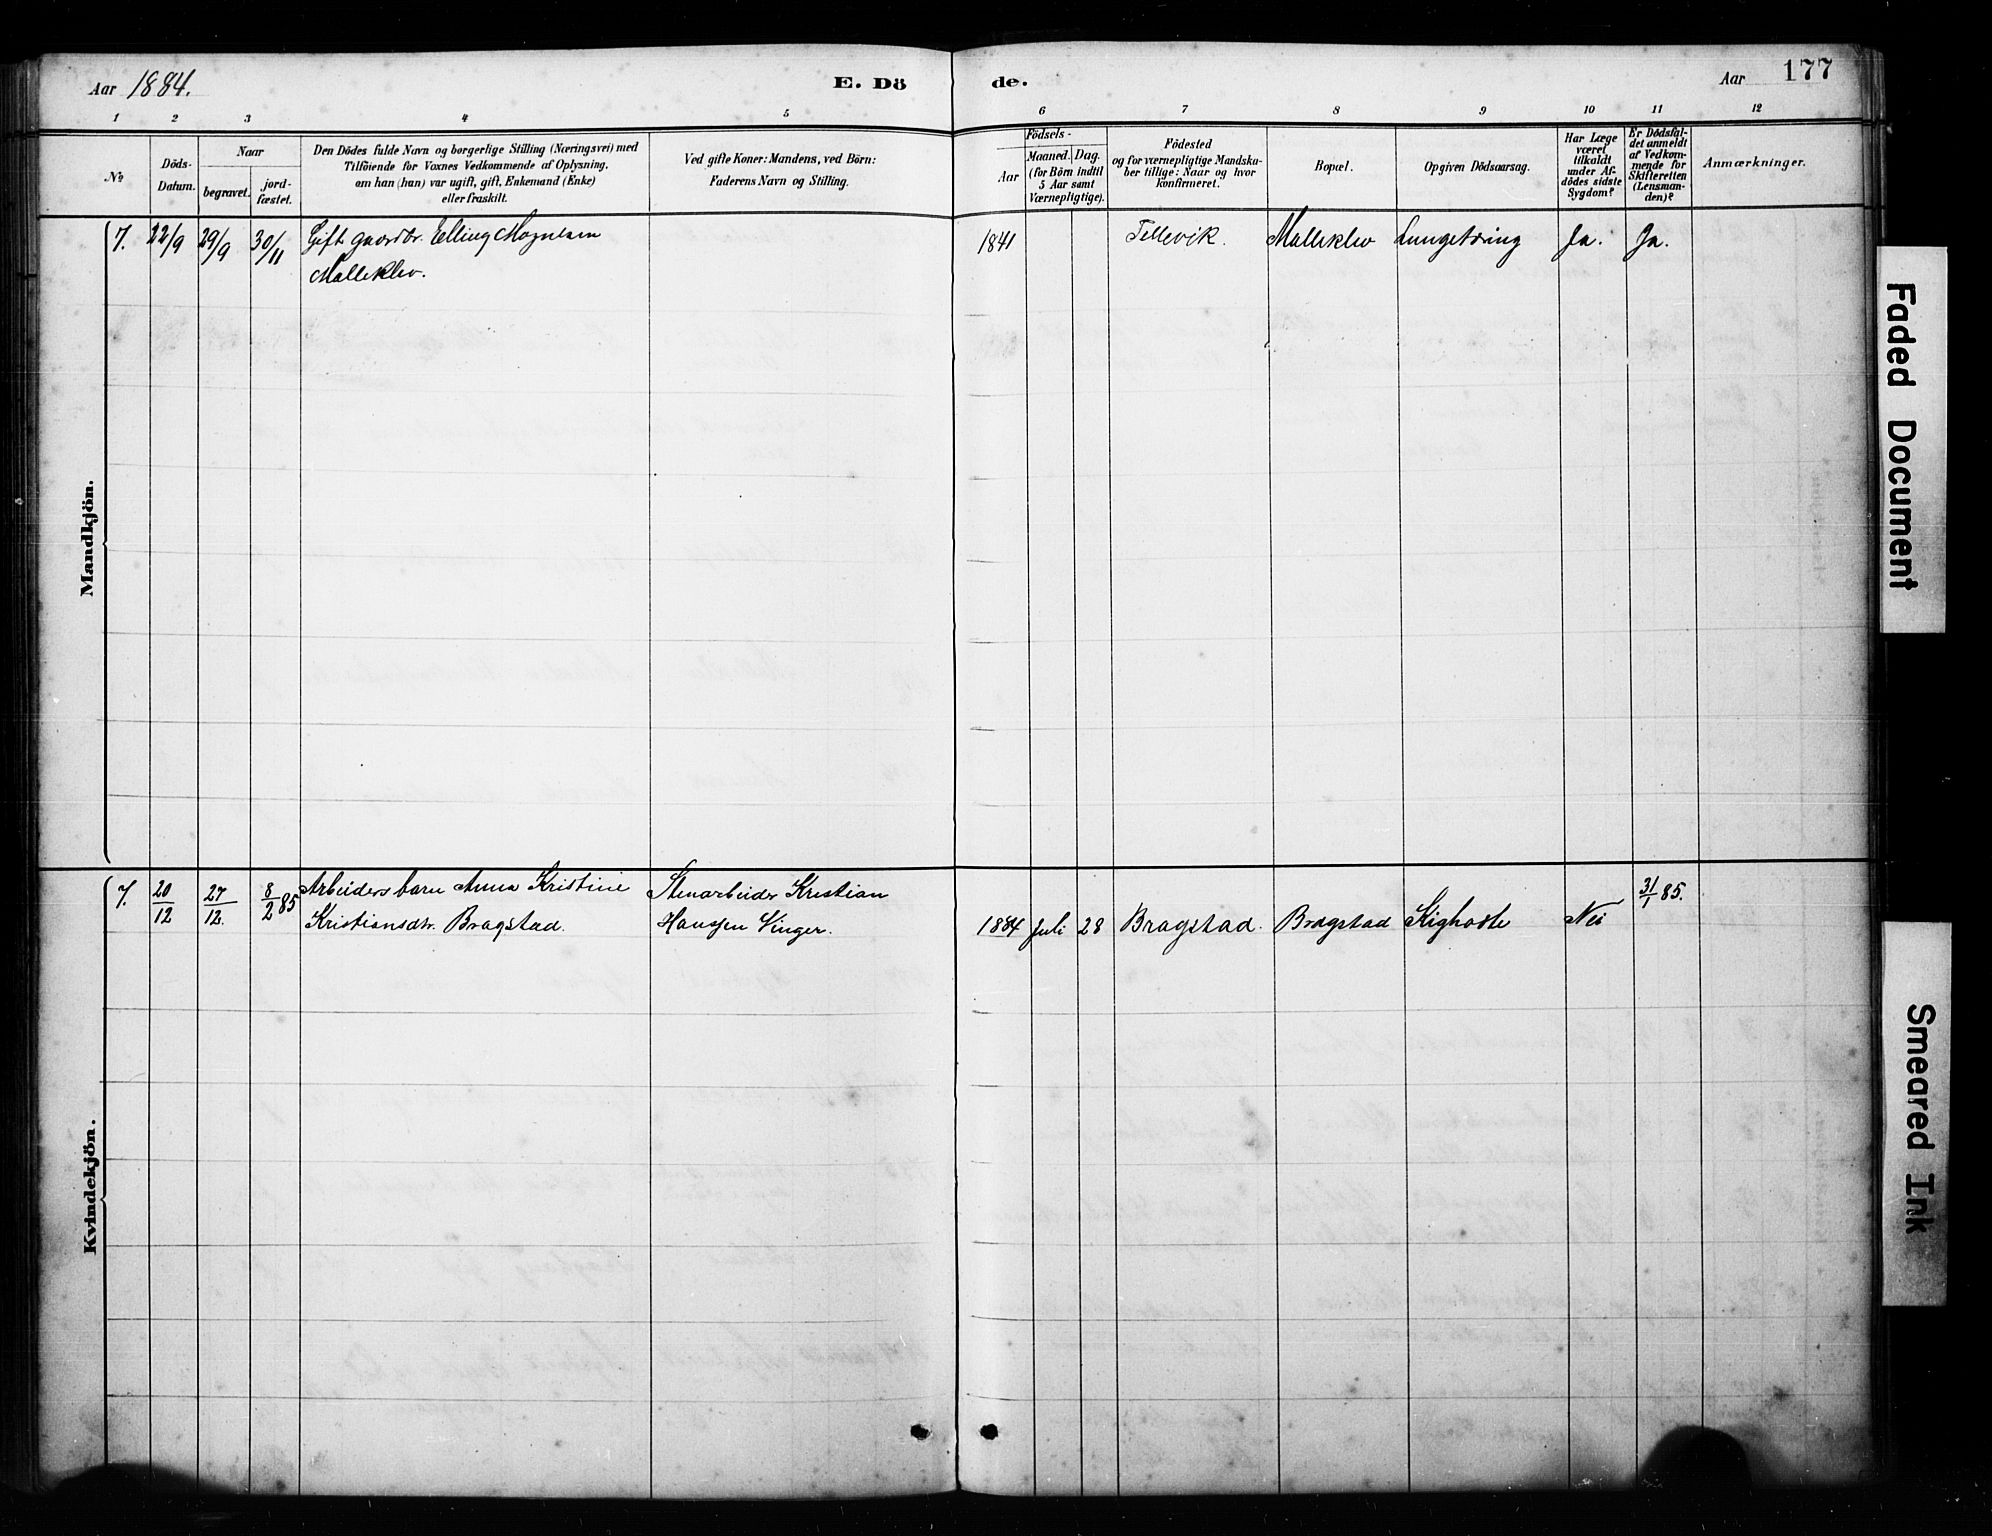 Aar 1884.
E. Dö
de.
Aar 177
1 2 3 4 5
6 7 8 9 10 11 12
№
Döds-
Datum.
Naar
begravet.
jord-
fæstet.
Den Dödes fulde Navn og borgerlige Stilling (Næringsvei) med
Tilföiende for Voxnes Vedkommende af Oplysning,
om han (hun) var ugift, gift, Enkemand (Enke)
eller fraskilt.
Ved gifte Koner: Mandens, ved Börn:
Faderens Navn og Stilling.
Födsels-
Aar
Maaned. Dag.
(for Börn indtil
5 Aar samt
Værnepligtige).
Födested
og for værnepligtige Mandska-
ber tillige: Naar og hvor
konfirmeret.
Bopæl.
Opgiven Dödsaarsag.
Har Læge
været
tilkaldt
under Af-
dödes sidste
Sygdom?
Er Dödsfal-
det anmeldt
af Vedkom-
mende for
Skifteretten
(Lensman-
den)?
Anmærkninger.
Mandkjön.
7. 22/9 29/9 30/11 Gift gaardbr. Elling Mognesen
Malleklev.
1841 Tellevik. Malleklev Lungetæring Ja. Ja.
Kvindekjön.
7. 20/12 27/12. 8/2 85 Arbeiders barn Anna Kristine
Kristiansdtr. Bragstad.
Stenarbeider Kristian
Hansen Vinger.
1884 Juli 28 Bragstad. Bragstad Kighoste Nei 31/1 85.
Faded Document
Smeared Ink